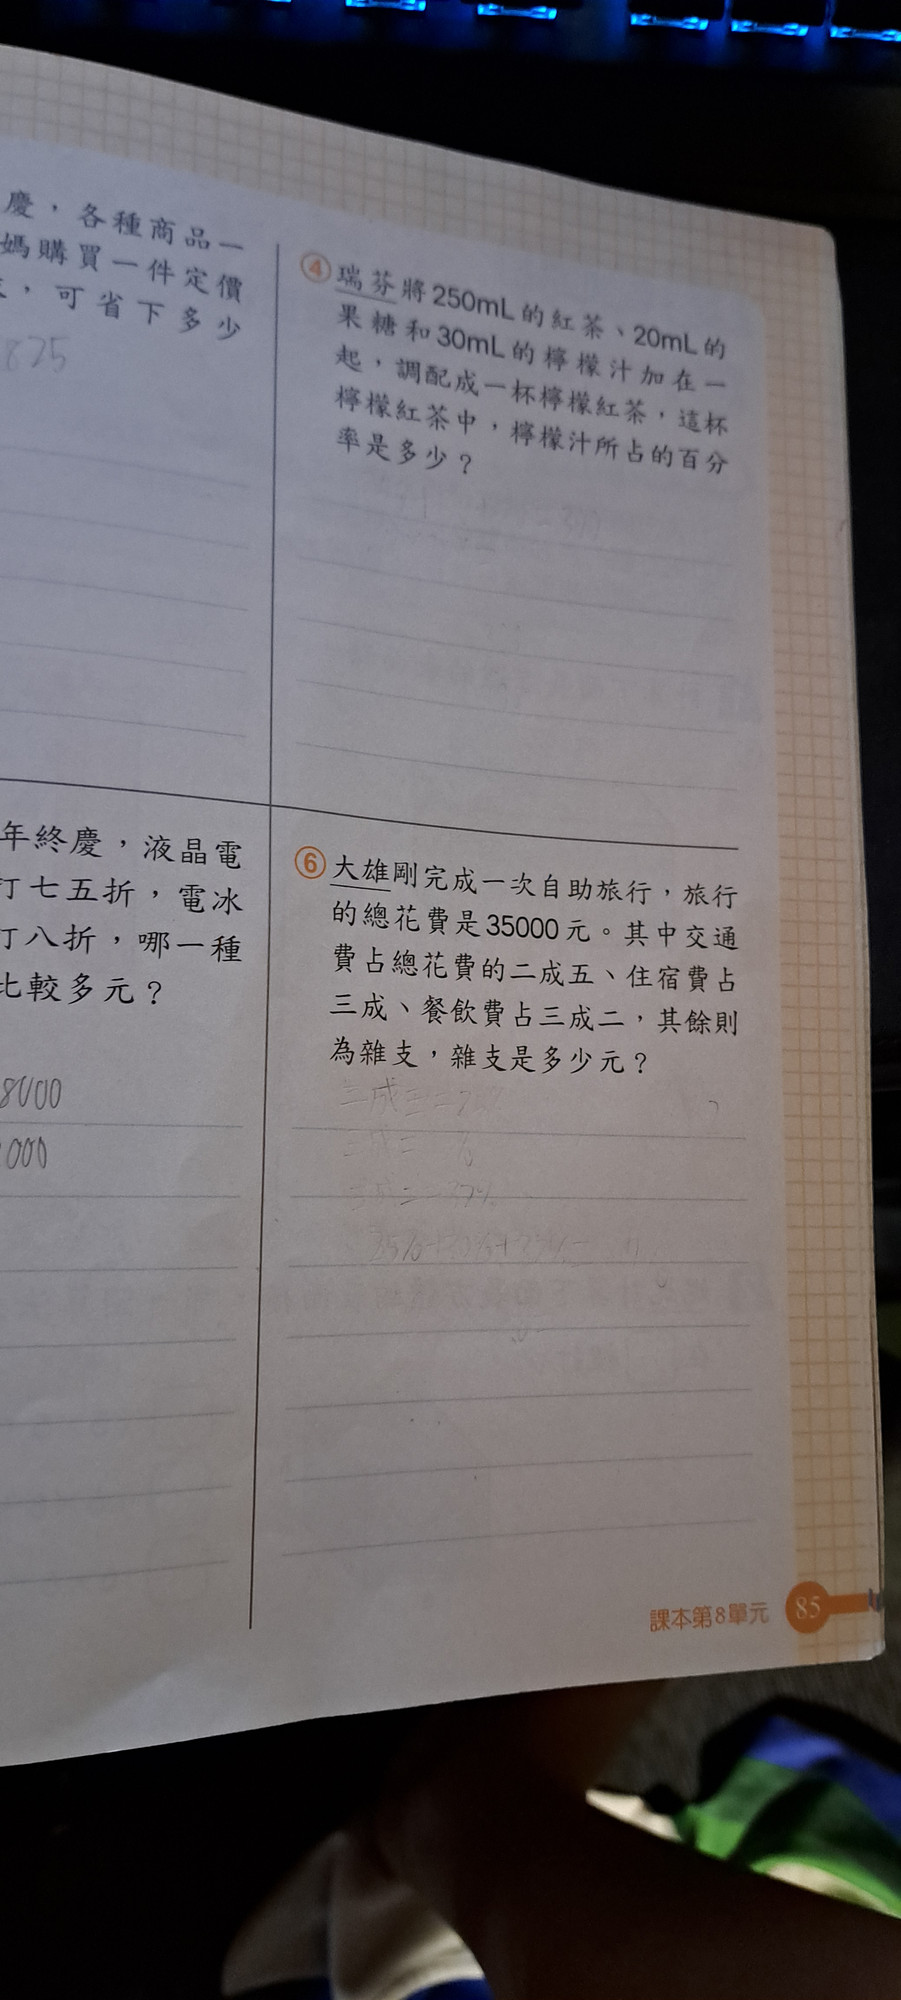 慶，各種商品一
媽購買一件定價
，可省下多少
825
④瑞芬將250mL的紅茶、20mL的
果糖和30mL的檸檬汁加在一
起，調配成一杯檸檬紅茶，這杯
檸檬紅茶中，檸檬汁所占的百分
率是多少？
年終慶，液晶電
打七五折，電冰
打八折，哪一種
比較多元？
8000
000
⑥大雄剛完成一次自助旅行，旅行
的總花費是35000元。其中交通
費占總花費的二成五、住宿費占
三成、餐飲費占三成二，其餘則
為雜支，雜支是多少元？
課本第8單元 85